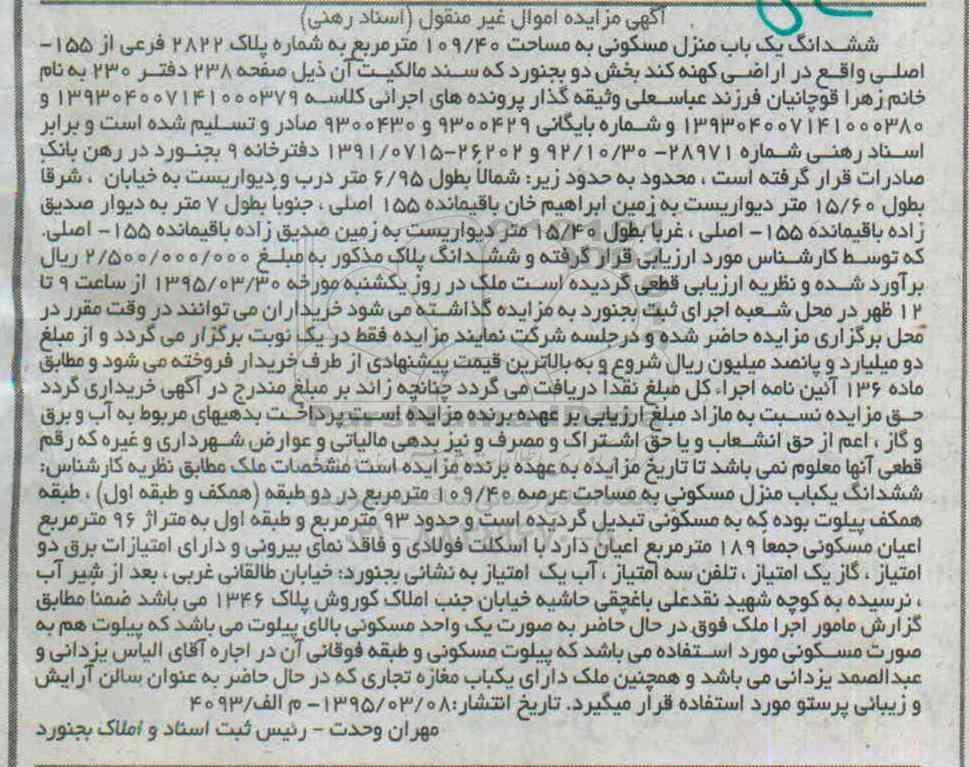 آگهی مزایده اموال غیر منقول (اسناد رهنی)
ششدانگ یک باب منزل مسکونی به مساحت ۱۰۹/۴۰ مترمربع به شماره پلاک ۲۸۲۲ فرعی از ۱۵۵-
اصلی واقع در اراضی کهنه کند بخش دو بجنورد که سند مالکیت آن ذیل صفحه ۲۳۸ دفتر ۲۳۰ به نام
خانم زهرا قوچانیان فرزند عباسعلی وثیقه گذار پرونده های اجرائی کلاسه ۱۳۹۳۰۴۰۰۷۱۴۱۰۰۰۳۷۹ و
۱۳۹۳۰۴۰۰۷۱۴۱۰۰۰۳۸۰ و شماره بایگانی ۹۳۰۰۴۲۹ و ۹۳۰۰۴۳۰ صادر و تسلیم شده است و برابر
اسناد رهنی شماره ۲۸۹۷۱- ۹۲/۱۰/۳۰ و ۲۶۲۰۲-۱۳۹۱/۰۷۱۵ دفترخانه ۹ بجنورد در رهن بانک
صادرات قرار گرفته است ، محدود به حدود زیر: شمالا بطول ۶/۹۵ متر درب و دیواریست به خیابان ، شرقا
بطول ۱۵/۶۰ متر دیواریست به زمین ابراهیم خان باقیمانده ۱۵۵ اصلی ، جنوبا بطول ۷ متر به دیوار صدیق
زاده باقیمانده ۱۵۵- اصلی ، غربا بطول ۱۵/۴۰ متر دیواریست به زمین صدیق زاده باقیمانده ۱۵۵- اصلی.
که توسط کارشناس مورد ارزیابی قرار گرفته و ششدانگ پلاک مذکور به مبلغ ۲/۵۰۰/۰۰۰/۰۰۰ ریال
برآورد شده و نظریه ارزیابی قطعی گردیده است ملک در روز یکشنبه مورخه ۱۳۹۵/۰۳/۳۰ از ساعت ۹ تا
۱۲ ظهر در محل شعبه اجرای ثبت بجنورد به مزایده گذاشته می شود خریداران می توانند در وقت مقرر در
محل برگزاری مزایده حاضر شده و درجلسه شرکت نمایند مزایده فقط در یک نوبت برگزار می گردد و از مبلغ
دو میلیارد و پانصد میلیون ریال شروع و به بالاترین قیمت پیشنهادی از طرف خریدار فروخته می شود و مطابق
ماده ۱۳۶ آئین نامه اجراء کل مبلغ نقدا دریافت می گردد چنانچه زائد بر مبلغ مندرج در آگهی خریداری گردد
حق مزایده نسبت به مازاد مبلغ ارزیابی بر عهده برنده مزایده است پرداخت بدهیهای مربوط به آب و برق
و گاز ، اعم از حق انشعاب و یا حق اشتراک و مصرف و نیز بدهی مالیاتی و عوارض شهرداری و غیره که رقم
قطعی آنها معلوم نمی باشد تا تاریخ مزایده به عهده برنده مزایده است مشخصات ملک مطابق نظریه کارشناس:
ششدانگ یکباب منزل مسکونی به مساحت عرصه ۱۰۹/۴۰ مترمربع در دو طبقه (همکف و طبقه اول) ، طبقه
همکف پیلوت بوده که به مسکونی تبدیل گردیده است و حدود ۹۳ مترمربع و طبقه اول به متراژ ۹۶ مترمربع
اعیان مسکونی جمعا ۱۸۹ مترمربع اعیان دارد با اسکلت فولادی و فاقد نمای بیرونی و دارای امتیازات برق دو
امتیاز ، گاز یک امتیاز ، تلفن سه امتیاز ، آب یک امتیاز به نشانی بجنورد: خیابان طالقانی غربی ، بعد از شیر آب
، نرسیده به کوچه شهید نقدعلی باغچقی حاشیه خیابان جنب املاک کوروش پلاک ۱۳۴۶ می باشد ضمنا مطابق
گزارش مامور اجرا ملک فوق در حال حاضر به صورت یک واحد مسکونی بالای پیلوت می باشد که پیلوت هم به
صورت مسکونی مورد استفاده می باشد که پیلوت مسکونی و طبقه فوقانی آن در اجاره آقای الیاس یزدانی و
عبدالصمد یزدانی می باشد و همچنین ملک دارای یکباب مغازه تجاری که در حال حاضر به عنوان سالن آرایش
و زیبائی پرستو مورد استفاده قرار میگیرد. تاریخ انتشار:۱۳۹۵/۰۳/۰۸- م الف/۴۰۹۳
مهران وحدت - رئیس ثبت اسناد و املاک بجنورد